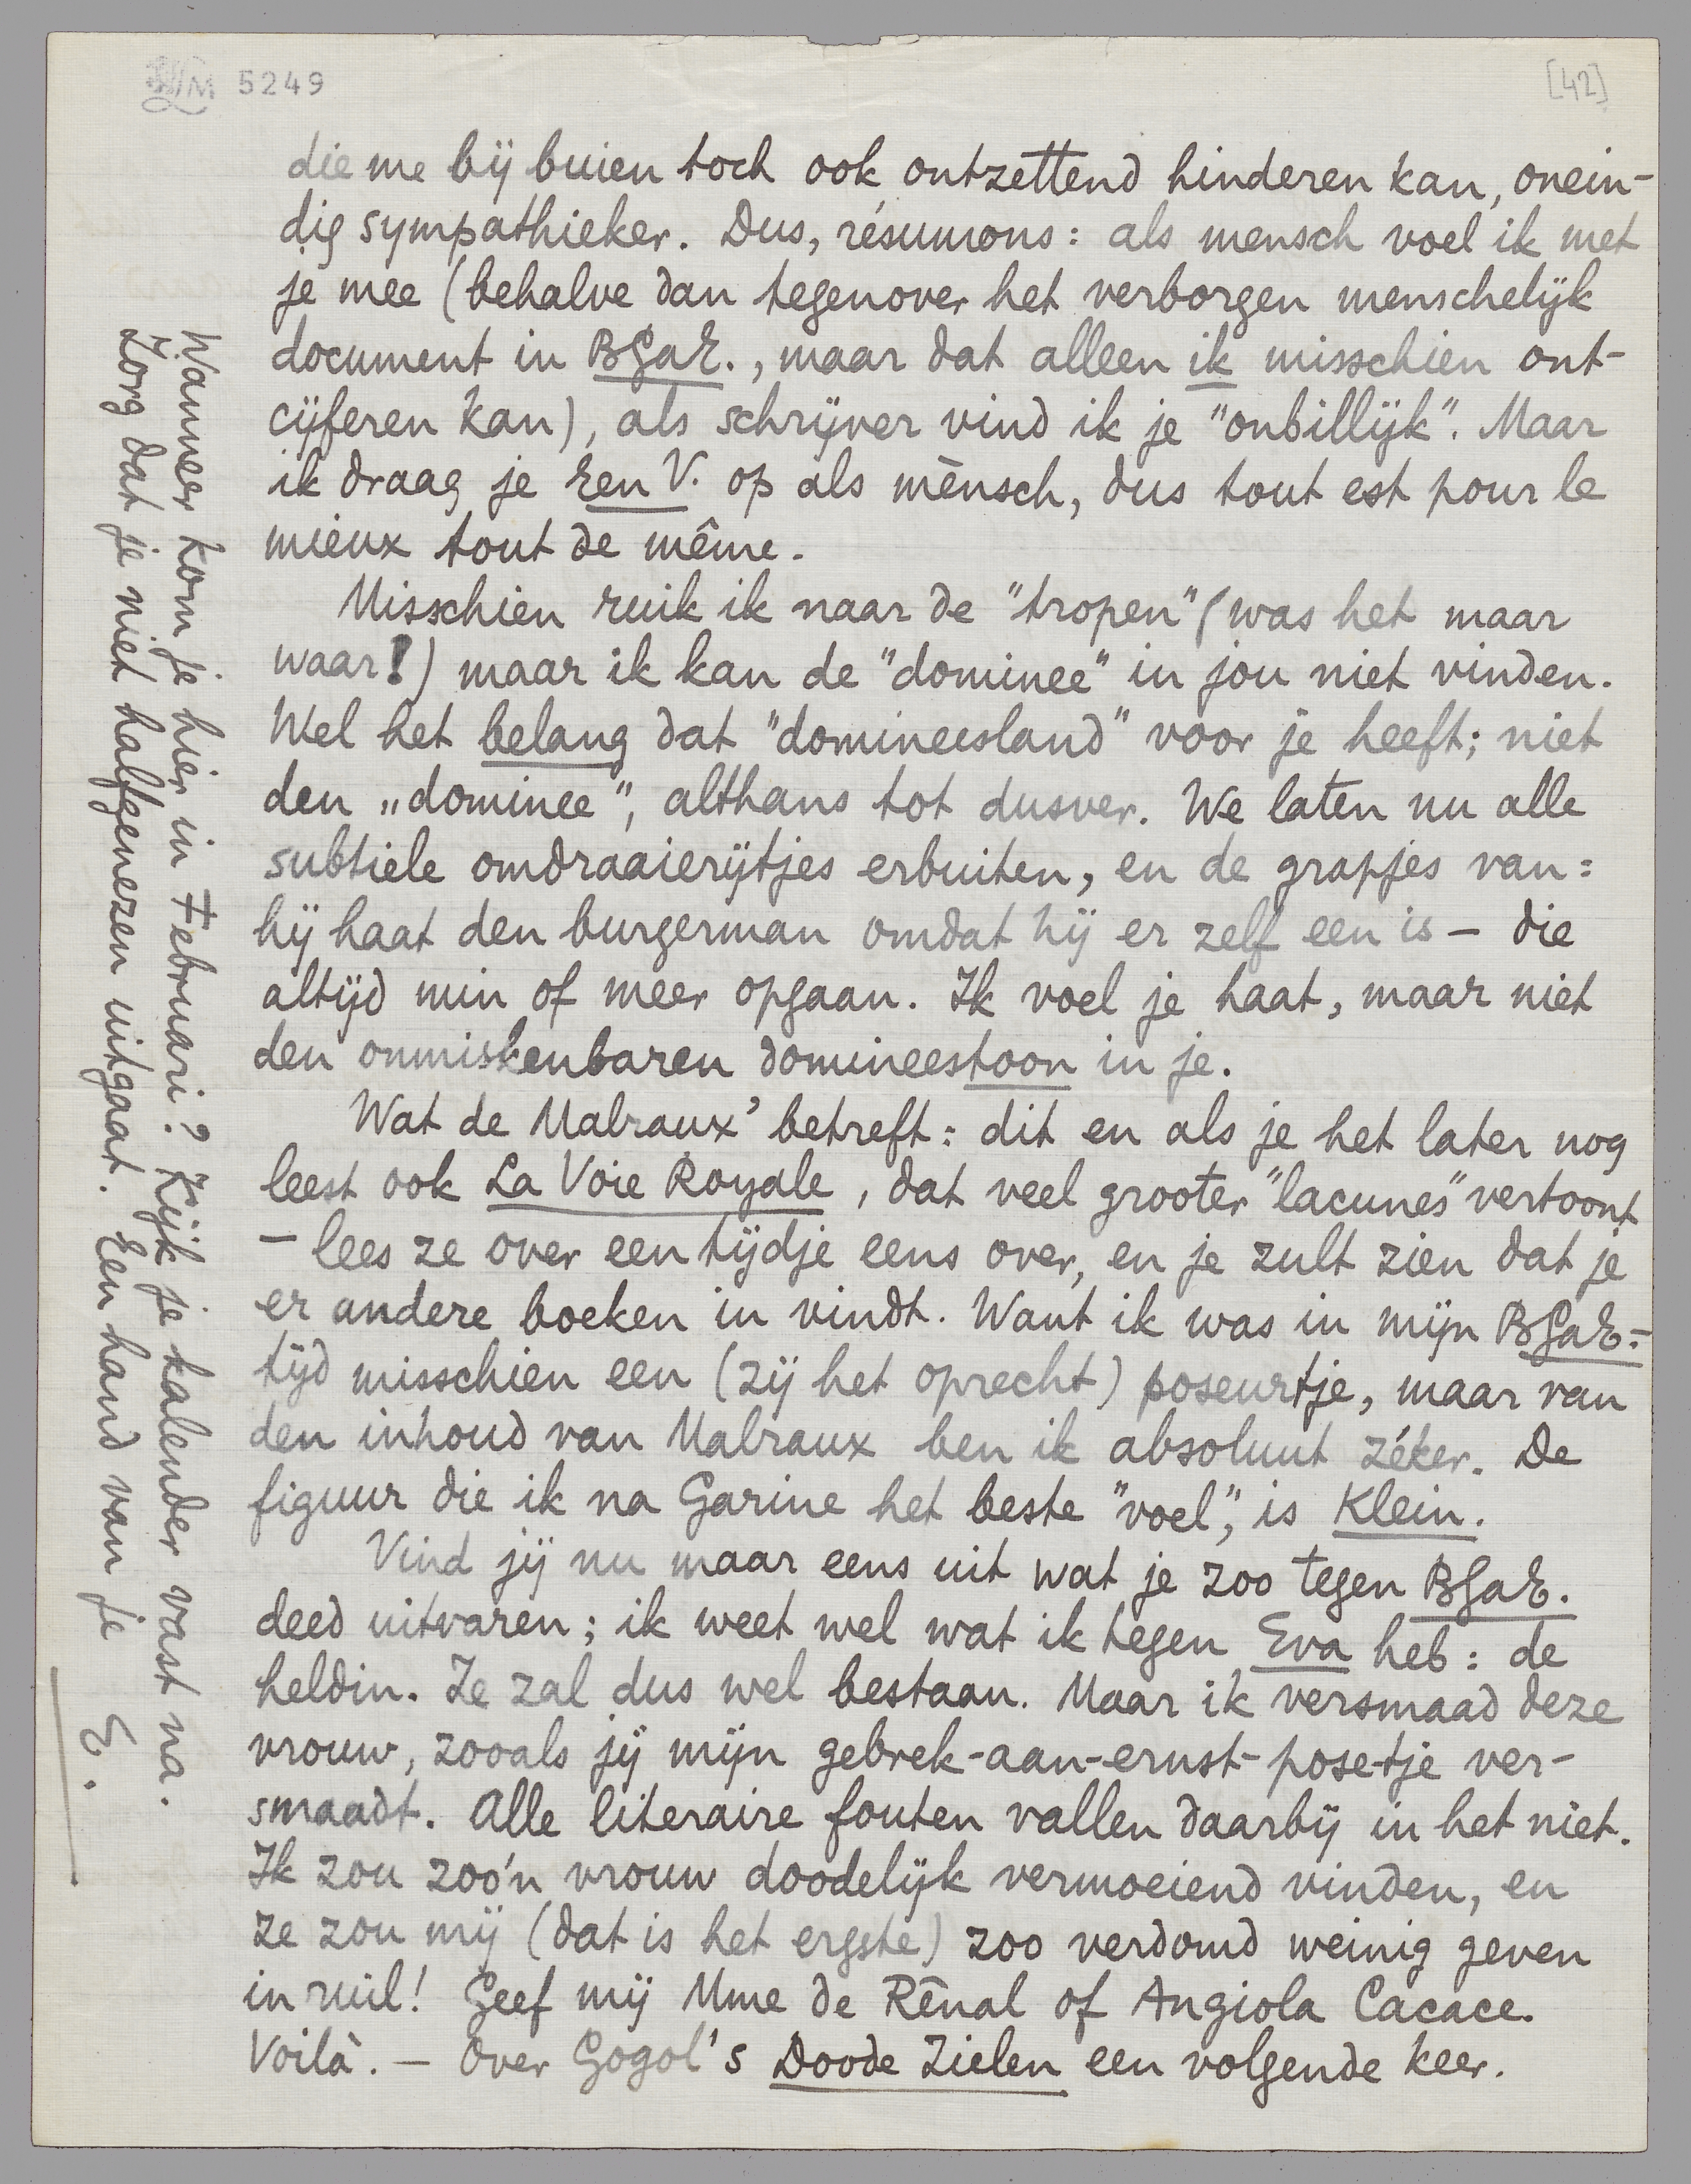 5249
[42]
die me bij buien toch ook ontzettend hinderen kan, onein-
dig sympathieker. Dus, résumons: als mensch voel ik met
je mee (behalve dan tegenover het verborgen menschelijk
document in BGaE., maar dat alleen ik misschien ont-
cijferen kan), als schrijver vind ik je "onbillijk". Maar
ik draag je E en V. op als mènsch, dus tout est pour le
mieux tout de même.
Misschien ruik ik naar de "tropen" (was het maar
waar!) maar ik kan de "dominee" in jou niet vinden.
Wel het belang dat "domineesland" voor je heeft; niet
den "dominee", althans tot dusver. We laten nu alle
subtiele omdraaierijtjes erbuiten, en de grapjes van:
hij haat den burgerman omdat hij er zelf een is – die
altijd min of meer opgaan. Ik voel je haat, maar niet
den onmiskenbaren domineestoon in je.
Wat de Malraux' betreft: dit en als je het later nog
leest ook La Voie Royale, dat veel grooter "lacunes" vertoont
– lees ze over een tijdje eens over, en je zult zien dat je
er andere boeken in vindt. Want ik was in mijn BGaE-
tijd misschien een (zij het oprecht) poseurtje, maar van
den inhoud van Malraux ben ik absoluut zéker. De
figuur die ik na Garine het beste "voel", is Klein.
Vind jij nu maar eens uit wat je zoo tegen BGaE.
deed uitvaren; ik weet wel wat ik tegen Eva heb: de
heldin. Ze zal dus wel bestaan. Maar ik versmaad deze
vrouw, zooals jij mijn gebrek-aan-ernst-pose-tje ver-
smaadt. Alle literaire fouten vallen daarbij in het niet.
Ik zou zoo'n vrouw doodelijk vermoeiend vinden, en
ze zou mij (dat is het ergste) zoo verdomd weinig geven
in ruil! Geef mij Mme de Rênal of Angiola Cacace.
Voilà. – Over Gogol's Doode Zielen een volgende keer.
Wanneer kom je hier in Februari? Kijk je kalender vast na.
Zorg dat je niet halfgenezen uitgaat. Een hand van je
E.